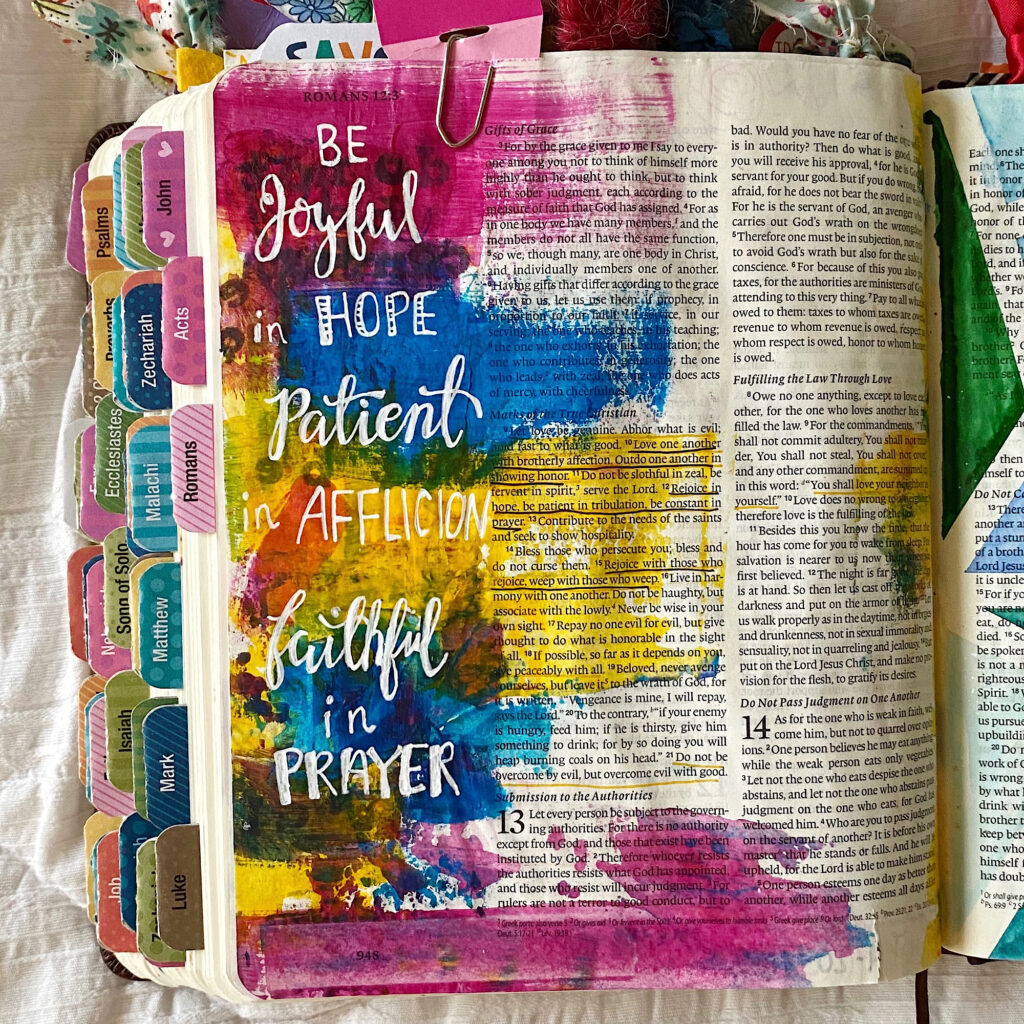 SAVO
ROMANS 12:3
BE
Joyful
in HOPE
Patient
in AFFLICION
faithful
in
PRAYER
948
John
Psalms
Acts
Proverbs
Zechariah
Romans
Ecclesiastes
Malachi
Song of Solo
Matthew
Isaiah
Mark
Job
Luke
Gifts of Grace
3For by the grace given to me I say to every-
one among you not to think of himself more
highly than he ought to think, but to think
with sober judgment, each according to the
measure of faith that God has assigned. 4For as
in one body we have many members, and the
members do not all have the same function,
5so we, though many, are one body in Christ,
and individually members one of another.
6Having gifts that differ according to the grace
given to us, let us use them: if prophecy, in
proportion to our faith; 7if service, in our
serving; the one who teaches, in his teaching;
8the one who exhorts, in his exhortation; the
one who contributes, in generosity; the one
who leads, with zeal; the one who does acts
of mercy, with cheerfulness.
Marks of the True Christian
9Let love be genuine. Abhor what is evil;
hold fast to what is good. 10Love one another
with brotherly affection. Outdo one another in
showing honor. 11Do not be slothful in zeal, be
fervent in spirit, serve the Lord. 12Rejoice in
hope, be patient in tribulation, be constant in
prayer. 13Contribute to the needs of the saints
and seek to show hospitality.
14Bless those who persecute you; bless and
do not curse them. 15Rejoice with those who
rejoice, weep with those who weep. 16Live in har-
mony with one another. Do not be haughty, but
associate with the lowly. Never be wise in your
own sight. 17Repay no one evil for evil, but give
thought to do what is honorable in the sight
of all. 18If possible, so far as it depends on you,
live peaceably with all. 19Beloved, never avenge
yourselves, but leave it to the wrath of God, for
it is written, "Vengeance is mine, I will repay,
says the Lord." 20To the contrary, "if your enemy
is hungry, feed him; if he is thirsty, give him
something to drink; for by so doing you will
heap burning coals on his head." 21Do not be
overcome by evil, but overcome evil with good.
Submission to the Authorities
13 Let every person be subject to the govern-
ing authorities. For there is no authority
except from God, and those that exist have been
instituted by God. 2Therefore whoever resists
the authorities resists what God has appointed,
and those who resist will incur judgment. 3For
rulers are not a terror to good conduct, but to
bad. Would you have no fear of the
is in authority? Then do what is good,
you will receive his approval, 4for he is God's
servant for your good. But if you do wrong,
afraid, for he does not bear the sword in
For he is the servant of God, an avenger who
carries out God's wrath on the wrongdoer.
5Therefore one must be in subjection, not only
to avoid God's wrath but also for the sake
conscience. 6For because of this you also
taxes, for the authorities are ministers of
attending to this very thing. 7Pay to all what
owed to them: taxes to whom taxes are owed,
revenue to whom revenue is owed, respect
whom respect is owed, honor to whom honor
is owed.
Fulfilling the Law Through Love
8Owe no one anything, except to love each
other, for the one who loves another has
filled the law. 9For the commandments, "You
shall not commit adultery, You shall not mur-
der, You shall not steal, You shall not covet,"
and any other commandment, are summed up
in this word: "You shall love your neighbor as
yourself." 10Love does no wrong to a neighbor;
therefore love is the fulfilling of the law.
11Besides this you know the time, that the
hour has come for you to wake from sleep. For
salvation is nearer to us now than when we
first believed. 12The night is far gone; the day
is at hand. So then let us cast off the works of
darkness and put on the armor of light. 13Let
us walk properly as in the daytime, not in orgies
and drunkenness, not in sexual immorality and
sensuality, not in quarreling and jealousy. 14But
put on the Lord Jesus Christ, and make no pro-
vision for the flesh, to gratify its desires.
Do Not Pass Judgment on One Another
14 As for the one who is weak in faith, wel-
come him, but not to quarrel over opin-
ions. 2One person believes he may eat anything,
while the weak person eats only vegetables.
3Let not the one who eats despise the one who
abstains, and let not the one who abstains pass
judgment on the one who eats, for God has
welcomed him. 4Who are you to pass judgment
on the servant of another? It is before his own
master that he stands or falls. And he will be
upheld, for the Lord is able to make him stand.
5One person esteems one day as better than
another, while another esteems all days alike.